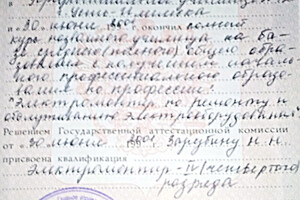 "30" июня 2001 окончил полный
курс названного училища на ба-
зе среднего (полного) общего обра-
зования с получением началь-
ного профессионального образо-
вания по профессии:
"Электромонтер по ремонту и
обслуживанию электрооборудования"
Решением Государственной аттестационной комиссии
от "30" июня 2001 Зарубину Н.Н.
присвоена квалификация
Электромонтер - IV (четвертого)
разряда